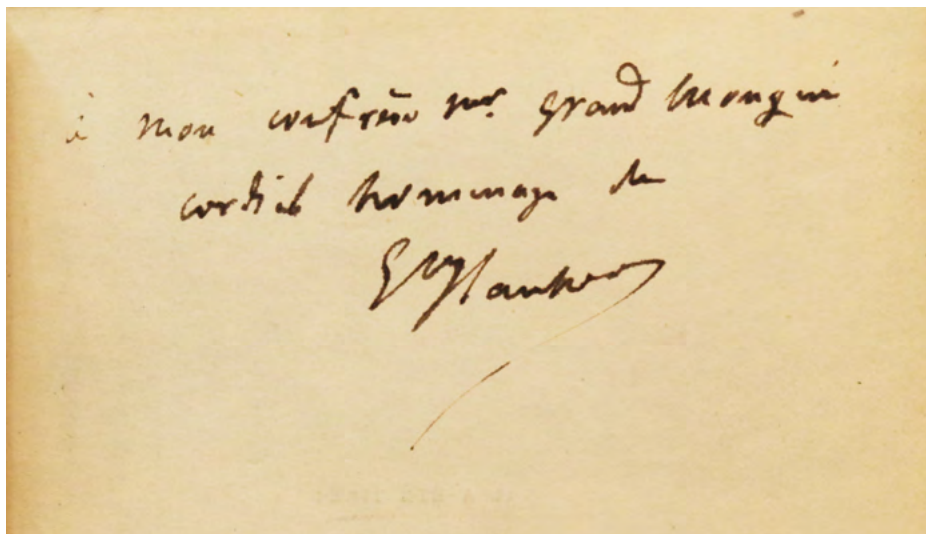 à mon confrère Mr. Grand Mongin
cordial hommage de